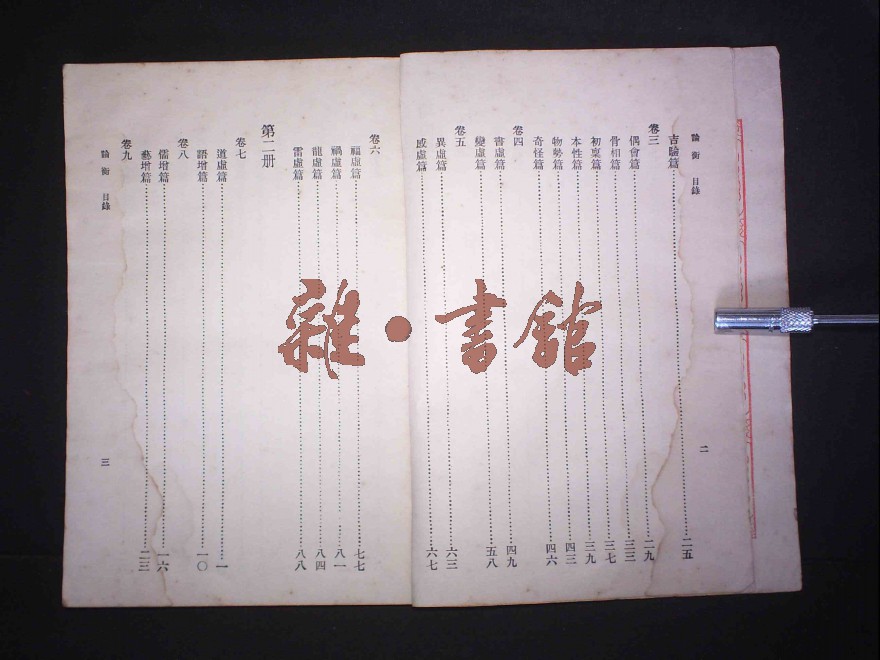 論衡 目錄
二
吉驗篇……二五
卷三
偶會篇……二九
骨相篇……三三
初稟篇……三七
本性篇……三九
物勢篇……四三
奇怪篇……四六
卷四
書虛篇……四九
變虛篇……五八
卷五
異虛篇……六三
感虛篇……六七
卷六
福虛篇……七七
禍虛篇……八一
龍虛篇……八四
雷虛篇……八八
第二册
卷七
道虛篇……一
語增篇……一〇
卷八
儒增篇……一六
藝增篇……二三
卷九
論衡 目錄
三
雜·書館